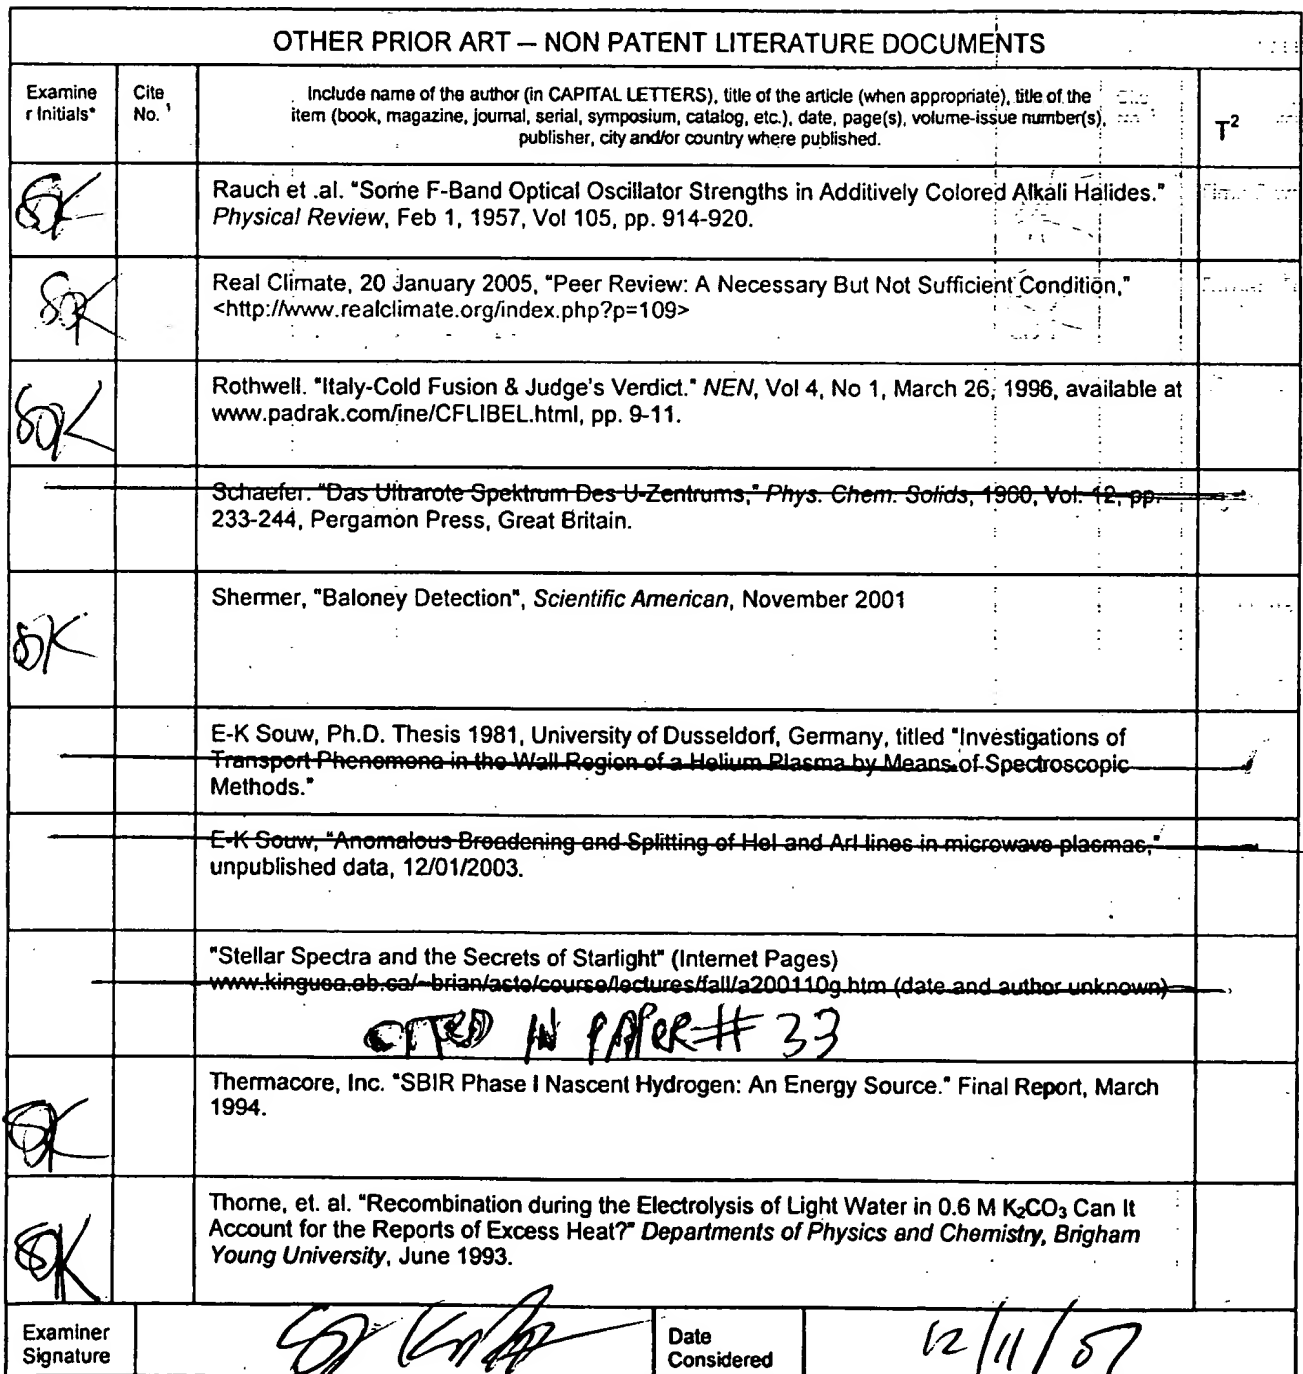 OTHER PRIOR ART – NON PATENT LITERATURE DOCUMENTS
Examine
r Initials*
Cite
No. 1
Include name of the author (in CAPITAL LETTERS), title of the article (when appropriate), title of the
item (book, magazine, journal, serial, symposium, catalog, etc.), date, page(s), volume-issue number(s),
publisher, city and/or country where published.
T2
SK
Rauch et .al. "Some F-Band Optical Oscillator Strengths in Additively Colored Alkali Halides."
Physical Review, Feb 1, 1957, Vol 105, pp. 914-920.
SK
Real Climate, 20 January 2005, "Peer Review: A Necessary But Not Sufficient Condition,"
<http://www.realclimate.org/index.php?p=109>
SK
Rothwell. "Italy-Cold Fusion & Judge's Verdict." NEN, Vol 4, No 1, March 26, 1996, available at
www.padrak.com/ine/CFLIBEL.html, pp. 9-11.
Schaefer. "Das Ultrarote Spektrum Des U-Zentrums," Phys. Chem. Solids, 1960, Vol. 12, pp.
233-244, Pergamon Press, Great Britain.
SK
Shermer, "Baloney Detection", Scientific American, November 2001
E-K Souw, Ph.D. Thesis 1981, University of Dusseldorf, Germany, titled "Investigations of
Transport Phenomena in the Wall Region of a Helium Plasma by Means of Spectroscopic
Methods."
E-K Souw, "Anomalous Broadening and Splitting of HeI and ArI lines in microwave plasmas,"
unpublished data, 12/01/2003.
"Stellar Spectra and the Secrets of Starlight" (Internet Pages)
www.kingusa.ab.ca/~brian/asto/course/lectures/fall/a200110g.htm (date and author unknown)
CITED IN PAPER # 33
SK
Thermacore, Inc. "SBIR Phase I Nascent Hydrogen: An Energy Source." Final Report, March
1994.
SK
Thorne, et. al. "Recombination during the Electrolysis of Light Water in 0.6 M K2CO3 Can It
Account for the Reports of Excess Heat?" Departments of Physics and Chemistry, Brigham
Young University, June 1993.
Examiner
Signature
Date
Considered
12/11/07